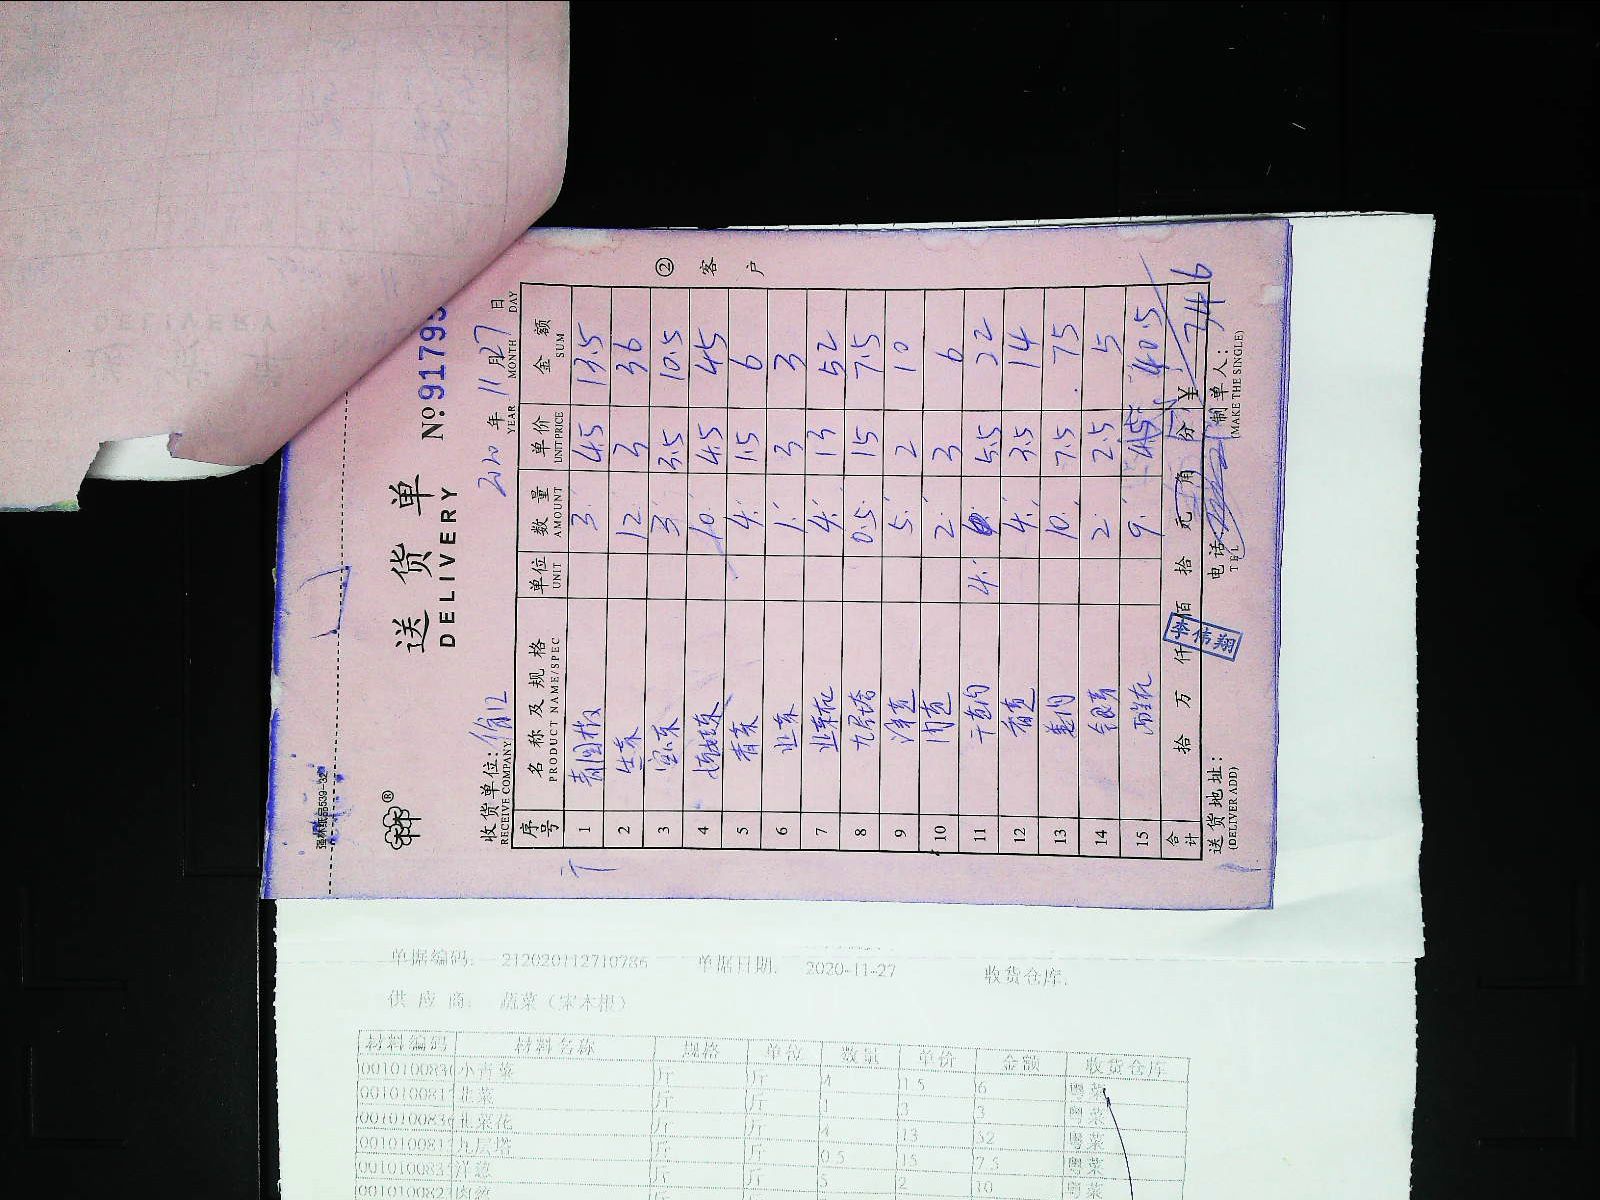 强林纸品539-32
送货单
DELIVERY
No. 91795
收货单位:
RECEIVE COMPANY
2020 年 11 月 27 日
YEAR MONTH DAY
② 客户
序号 名称及规格 单位 数量 单价 金额
PRODUCT NAME/SPEC UNIT AMOUNT UNIT PRICE SUM
1 青圆椒 3 4.5 13.5
2 生菜 12 3 36
3 3 3.5 10.5
4 娃娃菜 10 4.5 45
5 青菜 4 1.5 6
6 韭菜 1 3 3
7 韭菜花 4 13 52
8 九层塔 0.5 15 7.5
9 洋葱 5 2 10
10 肉葱 2 3 6
11 4 5.5 22
12 香葱 4 3.5 14
13 姜肉 10 7.5 75
14 2 2.5 5
15 西兰花 9 4.5 40.5
合计 拾 万 仟 佰 拾 元 角 分 ¥ 346
伟翔
送货地址: 电话 制单人:
(DELIVER ADD) TEL (MAKE THE SINGLE)
单据编码: 212020112710786 单据日期: 2020-11-27 收货仓库:
供应商: 蔬菜(宋本根)
材料编码 材料名称 规格 单位 数量 单价 金额 收货仓库
小青菜 斤 斤 4 1.5 6 粤菜
韭菜 斤 斤 1 3 3 粤菜
韭菜花 斤 斤 4 13 52 粤菜
九层塔 斤 斤 0.5 15 7.5 粤菜
洋葱 斤 斤 5 2 10 粤菜